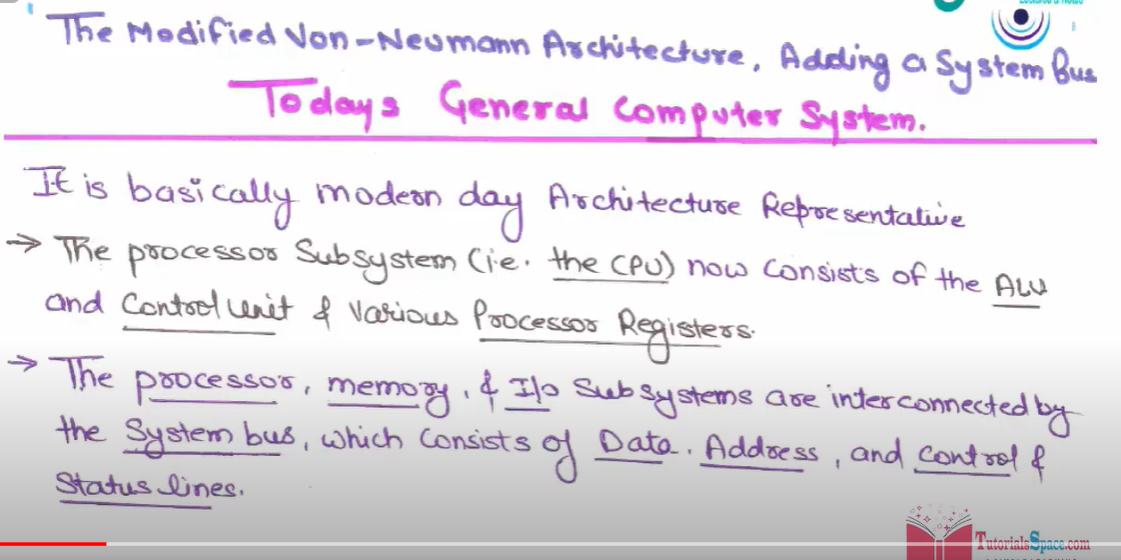 The Modified Von-Neumann Architecture, Adding a System Bus
Todays General Computer System.
It is basically modern day Architecture Representative
→ The processor Subsystem (i.e. the CPU) now consists of the ALU
and Control Unit & Various Processor Registers.
→ The processor, memory, & I/o Subsystems are interconnected by
the System bus, which consists of Data, Address, and Control &
Status lines.
TutorialsSpace.com